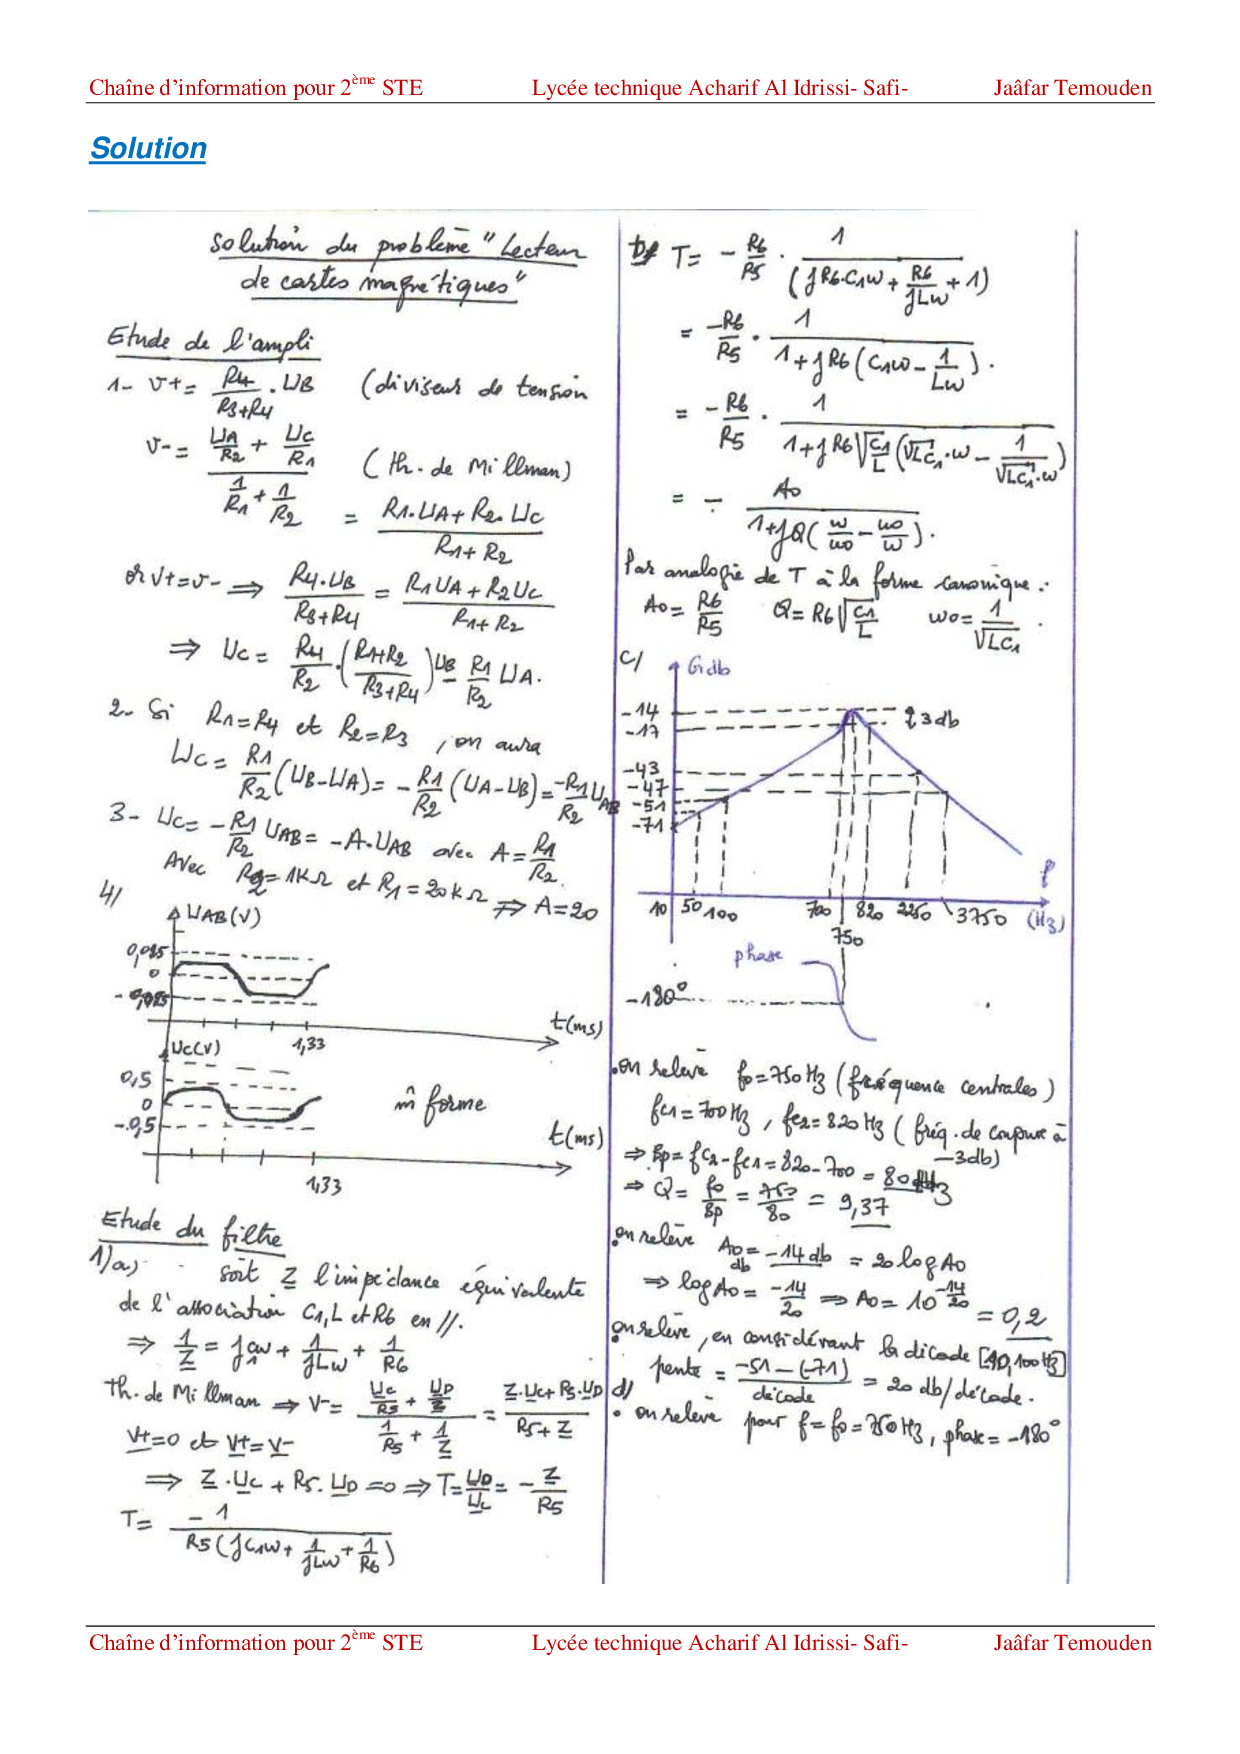 Chaîne d'information pour 2ème STE Lycée technique Acharif Al Idrissi- Safi- Jaâfar Temouden
Solution
Solution du problème "Lecteur
de cartes magnétiques"
Etude de l'ampli
1- v+ = R4/(R3+R4) . UB (diviseur de tension
v- = (UA/R2 + UC/R1)/(1/R1 + 1/R2) (th. de Millman)
= (R1.UA + R2.UC)/(R1+R2)
or v+=v- ⇒ R4.UB/(R3+R4) = (R1UA + R2UC)/(R1+R2)
⇒ UC = R4/R2 . ((R1+R2)/(R3+R4)) UB - R1/R2 UA.
2- Si R1=R4 et R2=R3, on aura
UC = R1/R2 (UB-UA) = - R1/R2 (UA-UB) = -R1/R2 UAB
3- UC = -R1/R2 UAB = -A.UAB avec A = R1/R2.
Avec R2=1KΩ et R1=20kΩ ⇒ A=20
4/
UAB(V)
0,025
0
- 0,025
1,33
t(ms)
UC(V)
0,5
0
-0,5
m̂ forme
t(ms)
1,33
Etude du filtre
1)a) soit Z l'impédance équivalente
de l'association C1, L et R6 en //.
⇒ 1/Z = jC1w + 1/jLw + 1/R6
Th. de Millman ⇒ V- = (UC/R5 + UD/Z)/(1/R5 + 1/Z) = (Z.UC + R5.UD)/(R5+Z)
V+=0 et V+=V-
⇒ Z.UC + R5.UD =0 ⇒ T = UD/UC = - Z/R5
T = -1/(R5(jC1w + 1/jLw + 1/R6))
b/ T = - R6/R5 . 1/(jR6.C1w + R6/jLw + 1)
= -R6/R5 . 1/(1+jR6(C1w - 1/Lw)).
= - R6/R5 . 1/(1+jR6√(C1/L)(√LC1.w - 1/(√LC1.w)))
= - A0/(1+jQ(w/w0 - w0/w)).
Par analogie de T à la forme canonique :
A0 = R6/R5 Q = R6√(C1/L) w0 = 1/√LC1 .
c/ Gdb
-14
-17
3db
-43
-47
-51
-71
f
10 50 100 700 820 2250 3750 (Hz)
750
phase
-180°
.on relève f0=750Hz (fréquence centrales)
fc1=700Hz, fc2=820Hz (fréq. de coupure à
-3db)
⇒ Bp = fc2-fc1 = 820-700 = 80Hz
⇒ Q = f0/Bp = 750/80 = 9,37
.on relève A0db = -14db = 20logA0
⇒ logA0 = -14/20 ⇒ A0 = 10^(-14/20) = 0,2
.on relève, en considérant la décade [10,100Hz]
pente = (-51-(-71))/décade = 20 db/décade.
d/
. on relève pour f=f0=750Hz, phase = -180°
Chaîne d'information pour 2ème STE Lycée technique Acharif Al Idrissi- Safi- Jaâfar Temouden